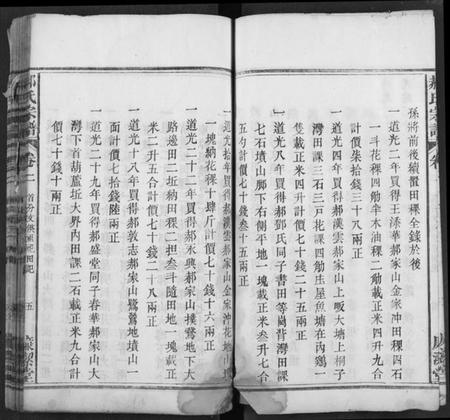 孫將前後續置田稞全錄於後
一道光二年買得王滌華郝家山金家冲田稞四石
一斗花稞四觔半木油稞二觔載正米四升九合
計價柒拾錢三十八兩正
一道光四年買得郝漢雲郝家山上啖大塘上桐子
灣田課三石三戸花課四觔庄屋魚塘在內鷄一
隻載正米四升計價七十錢二十五兩正
一道光八年買得郝鄧氏同子書田等崗背灣田課
七石墳山脚下右側平地一塊載正米叁升七合
五勺計價七十錢叁十五兩正
一道光拾年買得郝漢雲郝家山金家冲花地
一塊納花稞十肆斤計價七十錢十六兩正
一道光十二年買得郝永興郝家山撲鶯地下大
路邊田二坵納田稞二担叁斗隨田地一塊載正
米二升五合計價七十錢二十八兩正
一道光十八年買得郝敦志郝家山鶯鶯地墳山一
面計價七拾錢陸兩正
一道光二十九年買得郝盛堂同子春華郝家山大
灣下首葫蘆坵大界內田課二石載正米九合計
價七十錢十兩正
郝氏宗譜
卷一
五